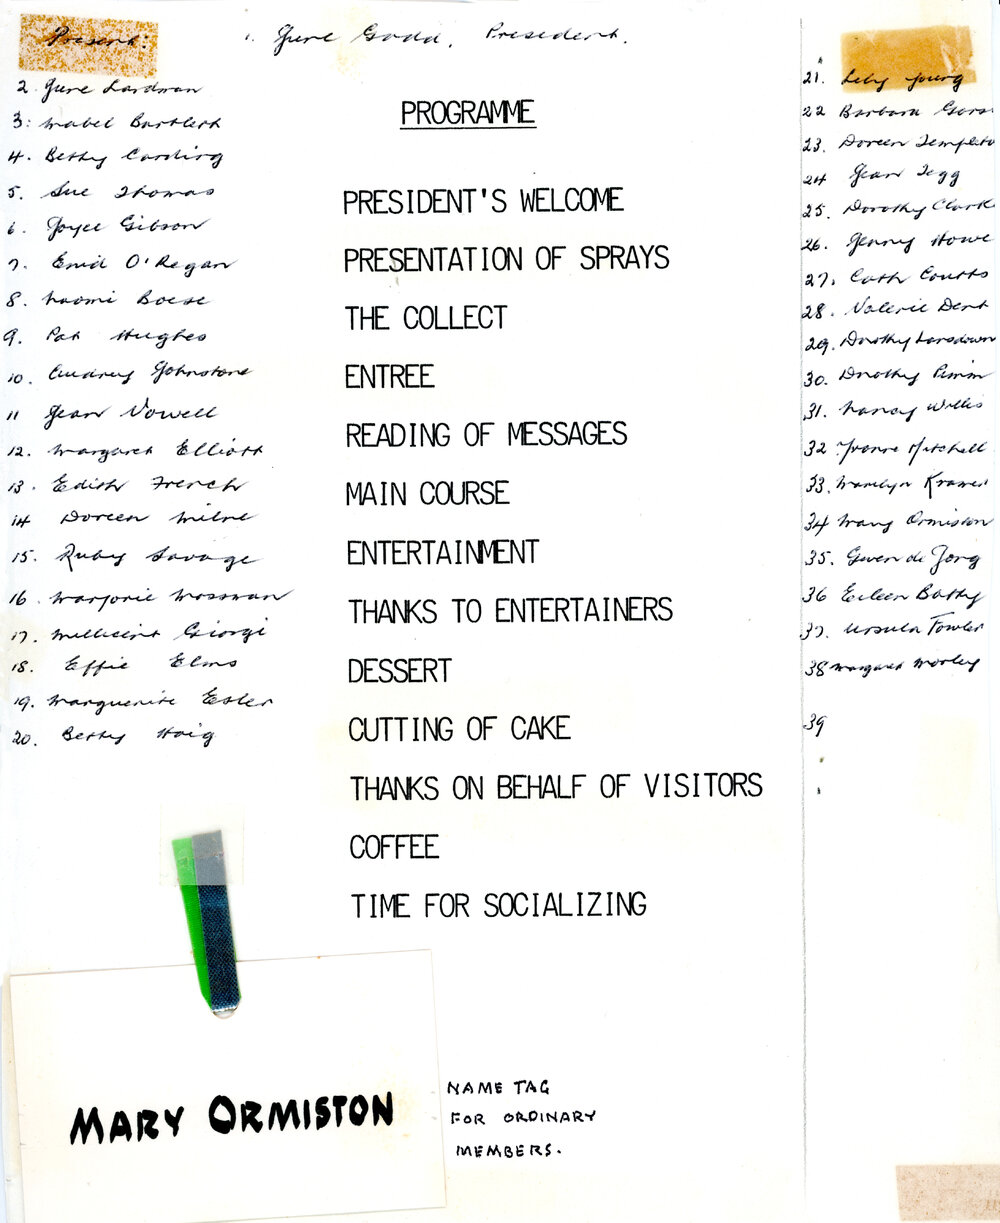 Present:
1. June Godd, President.
2. June Lardman
3: Mabel Bartlett
4. Betty Carding
5. Sue Thomas
6. Joyce Gibson
7. Enid O'Regan
8. Naomi Boese
9. Pat Hughes
10. Audrey Johnstone
11 Jean Vowell
12. Margaret Elliott
13. Edith French
14 Doreen Milne
15. Ruby Savage
16. Marjorie Mossman
17. Millicent Giorgi
18. Effie Elms
19. Marguerite Esler
20. Betty Haig
PROGRAMME
PRESIDENT'S WELCOME
PRESENTATION OF SPRAYS
THE COLLECT
ENTREE
READING OF MESSAGES
MAIN COURSE
ENTERTAINMENT
THANKS TO ENTERTAINERS
DESSERT
CUTTING OF CAKE
THANKS ON BEHALF OF VISITORS
COFFEE
TIME FOR SOCIALIZING
21. Young
22 Barbara
23. Doreen Templeto
24 Jean Tegg
25. Dorothy Clarke
26. Jenny Howe
27. Cath Coutts
28. Valerie Dent
29. Dorothy Lansdown
30. Dorothy Pimm
31. Nancy Willis
32 Yvonne Mitchell
33. Marilyn Kramer
34 Mary Ormiston
35. Gwen de Jong
36 Eileen Batty
37. Ursula Fowler
38 Margaret Morley
39
MARY ORMISTON
NAME TAG
FOR ORDINARY
MEMBERS.